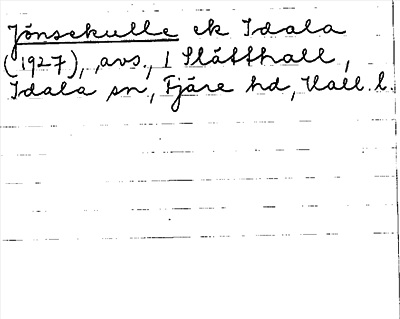 Jönsekulle ek Idala
(1927), avs., 1 Slätthall,
Idala sn, Fjäre hd, Hall. l.